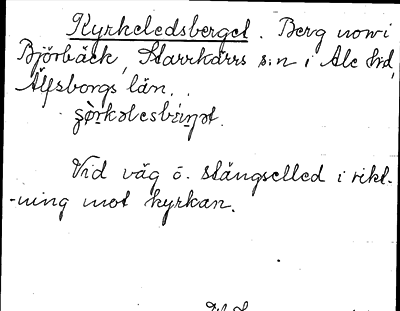 Kyrkeledsberget. Berg uowi
Björbäck, Starrkärrs s:n i Ale hd,
Älfsborgs län.
Vid väg o. stängselled i rikt-
-ning mot kyrkan.